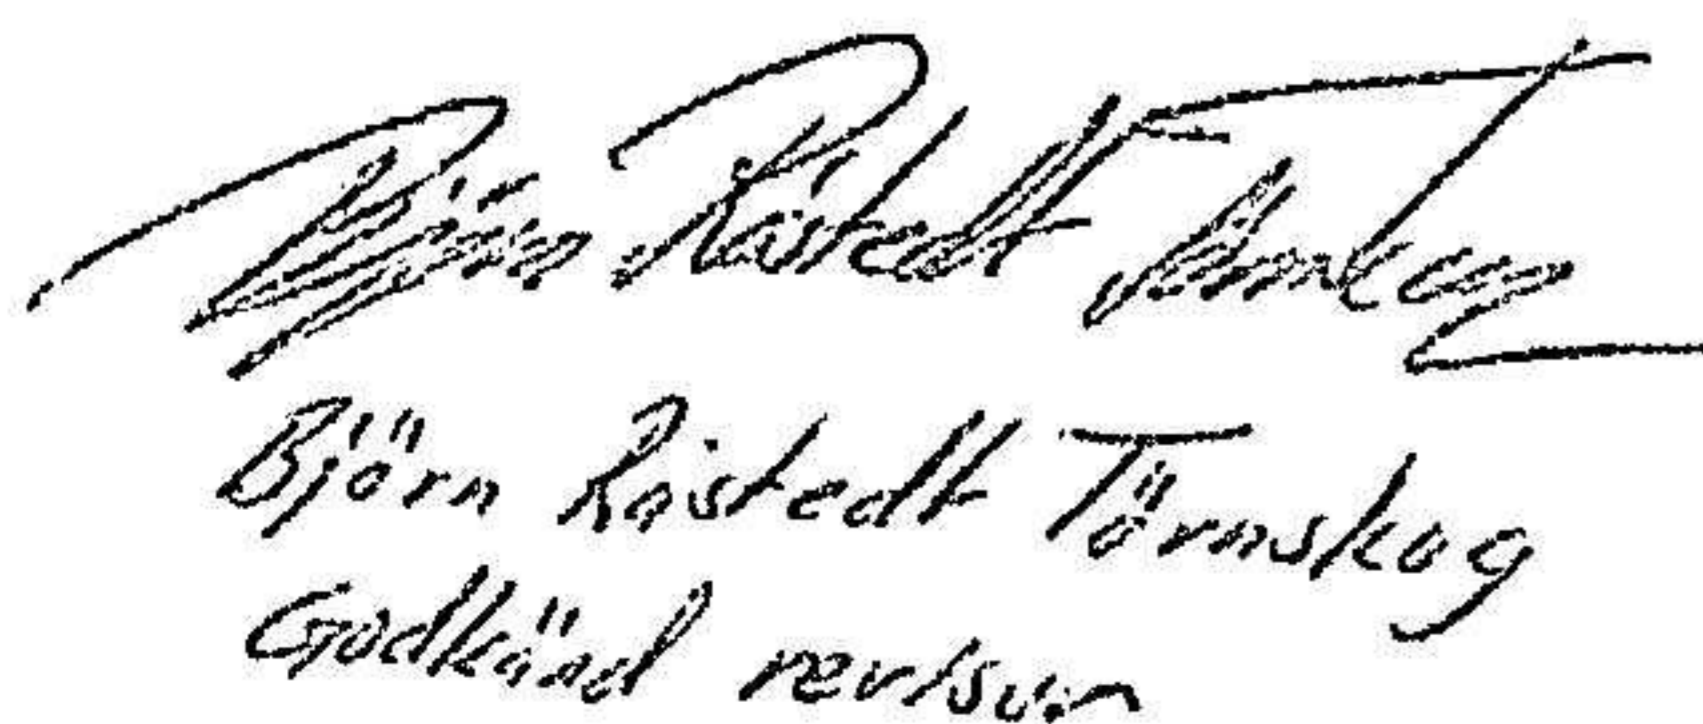 Björn Råstedt Törnskog
Björn Råstedt Törnskog
Godkänd revisor